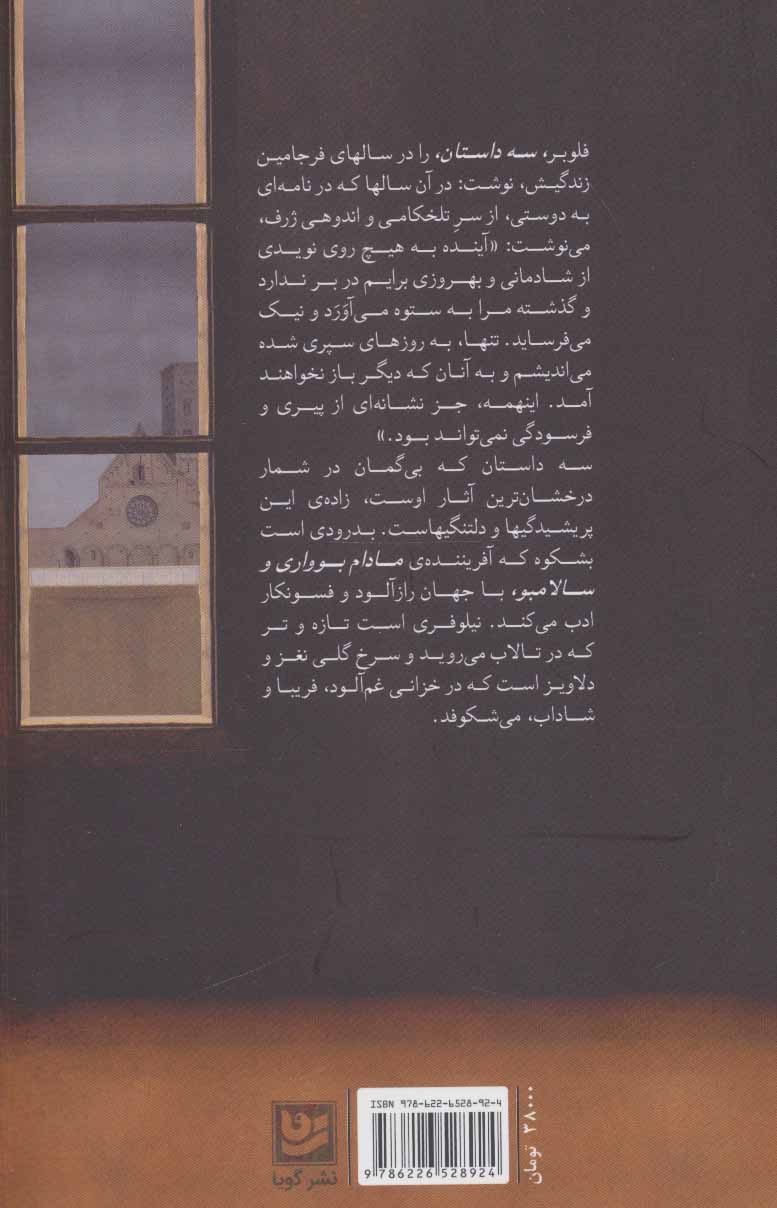 فلوبر، سه داستان، را در سالهای فرجامین
زندگیش، نوشت: در آن سالها که در نامه‌ای
به دوستی، از سرِ تلخکامی و اندوهی ژرف،
می‌نوشت: «آینده به هیچ روی نویدی
از شادمانی و بهروزی برایم در بر ندارد
و گذشته مرا به ستوه می‌آوَرَد و نیک
می‌فرساید. تنها، به روزهای سپری شده
می‌اندیشم و به آنان که دیگر باز نخواهند
آمد. اینهمه، جز نشانه‌ای از پیری و
فرسودگی نمی‌تواند بود.»
سه داستان که بی‌گمان در شمار
درخشان‌ترین آثار اوست، زاده‌ی این
پریشیدگیها و دلتنگیهاست. بدرودی است
بشکوه که آفریننده‌ی مادام بوواری و
سالامبو، با جهان رازآلود و فسونکار
ادب می‌کند. نیلوفری است تازه و تر
که در تالاب می‌روید و سرخ گلی نغز و
دلاویز است که در خزانی غم‌آلود، فریبا و
شاداب، می‌شکوفد.
نشر گویا
ISBN 978-622-6528-92-4
9 786226 528924
۳۸۰۰۰ تومان